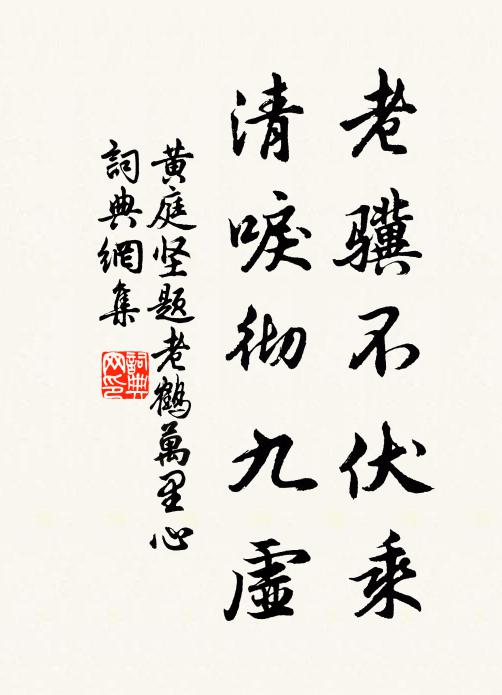 老骥不伏乘
清唳彻九虚
黄庭坚题老鶴萬里心
詞典網集
詞典网印